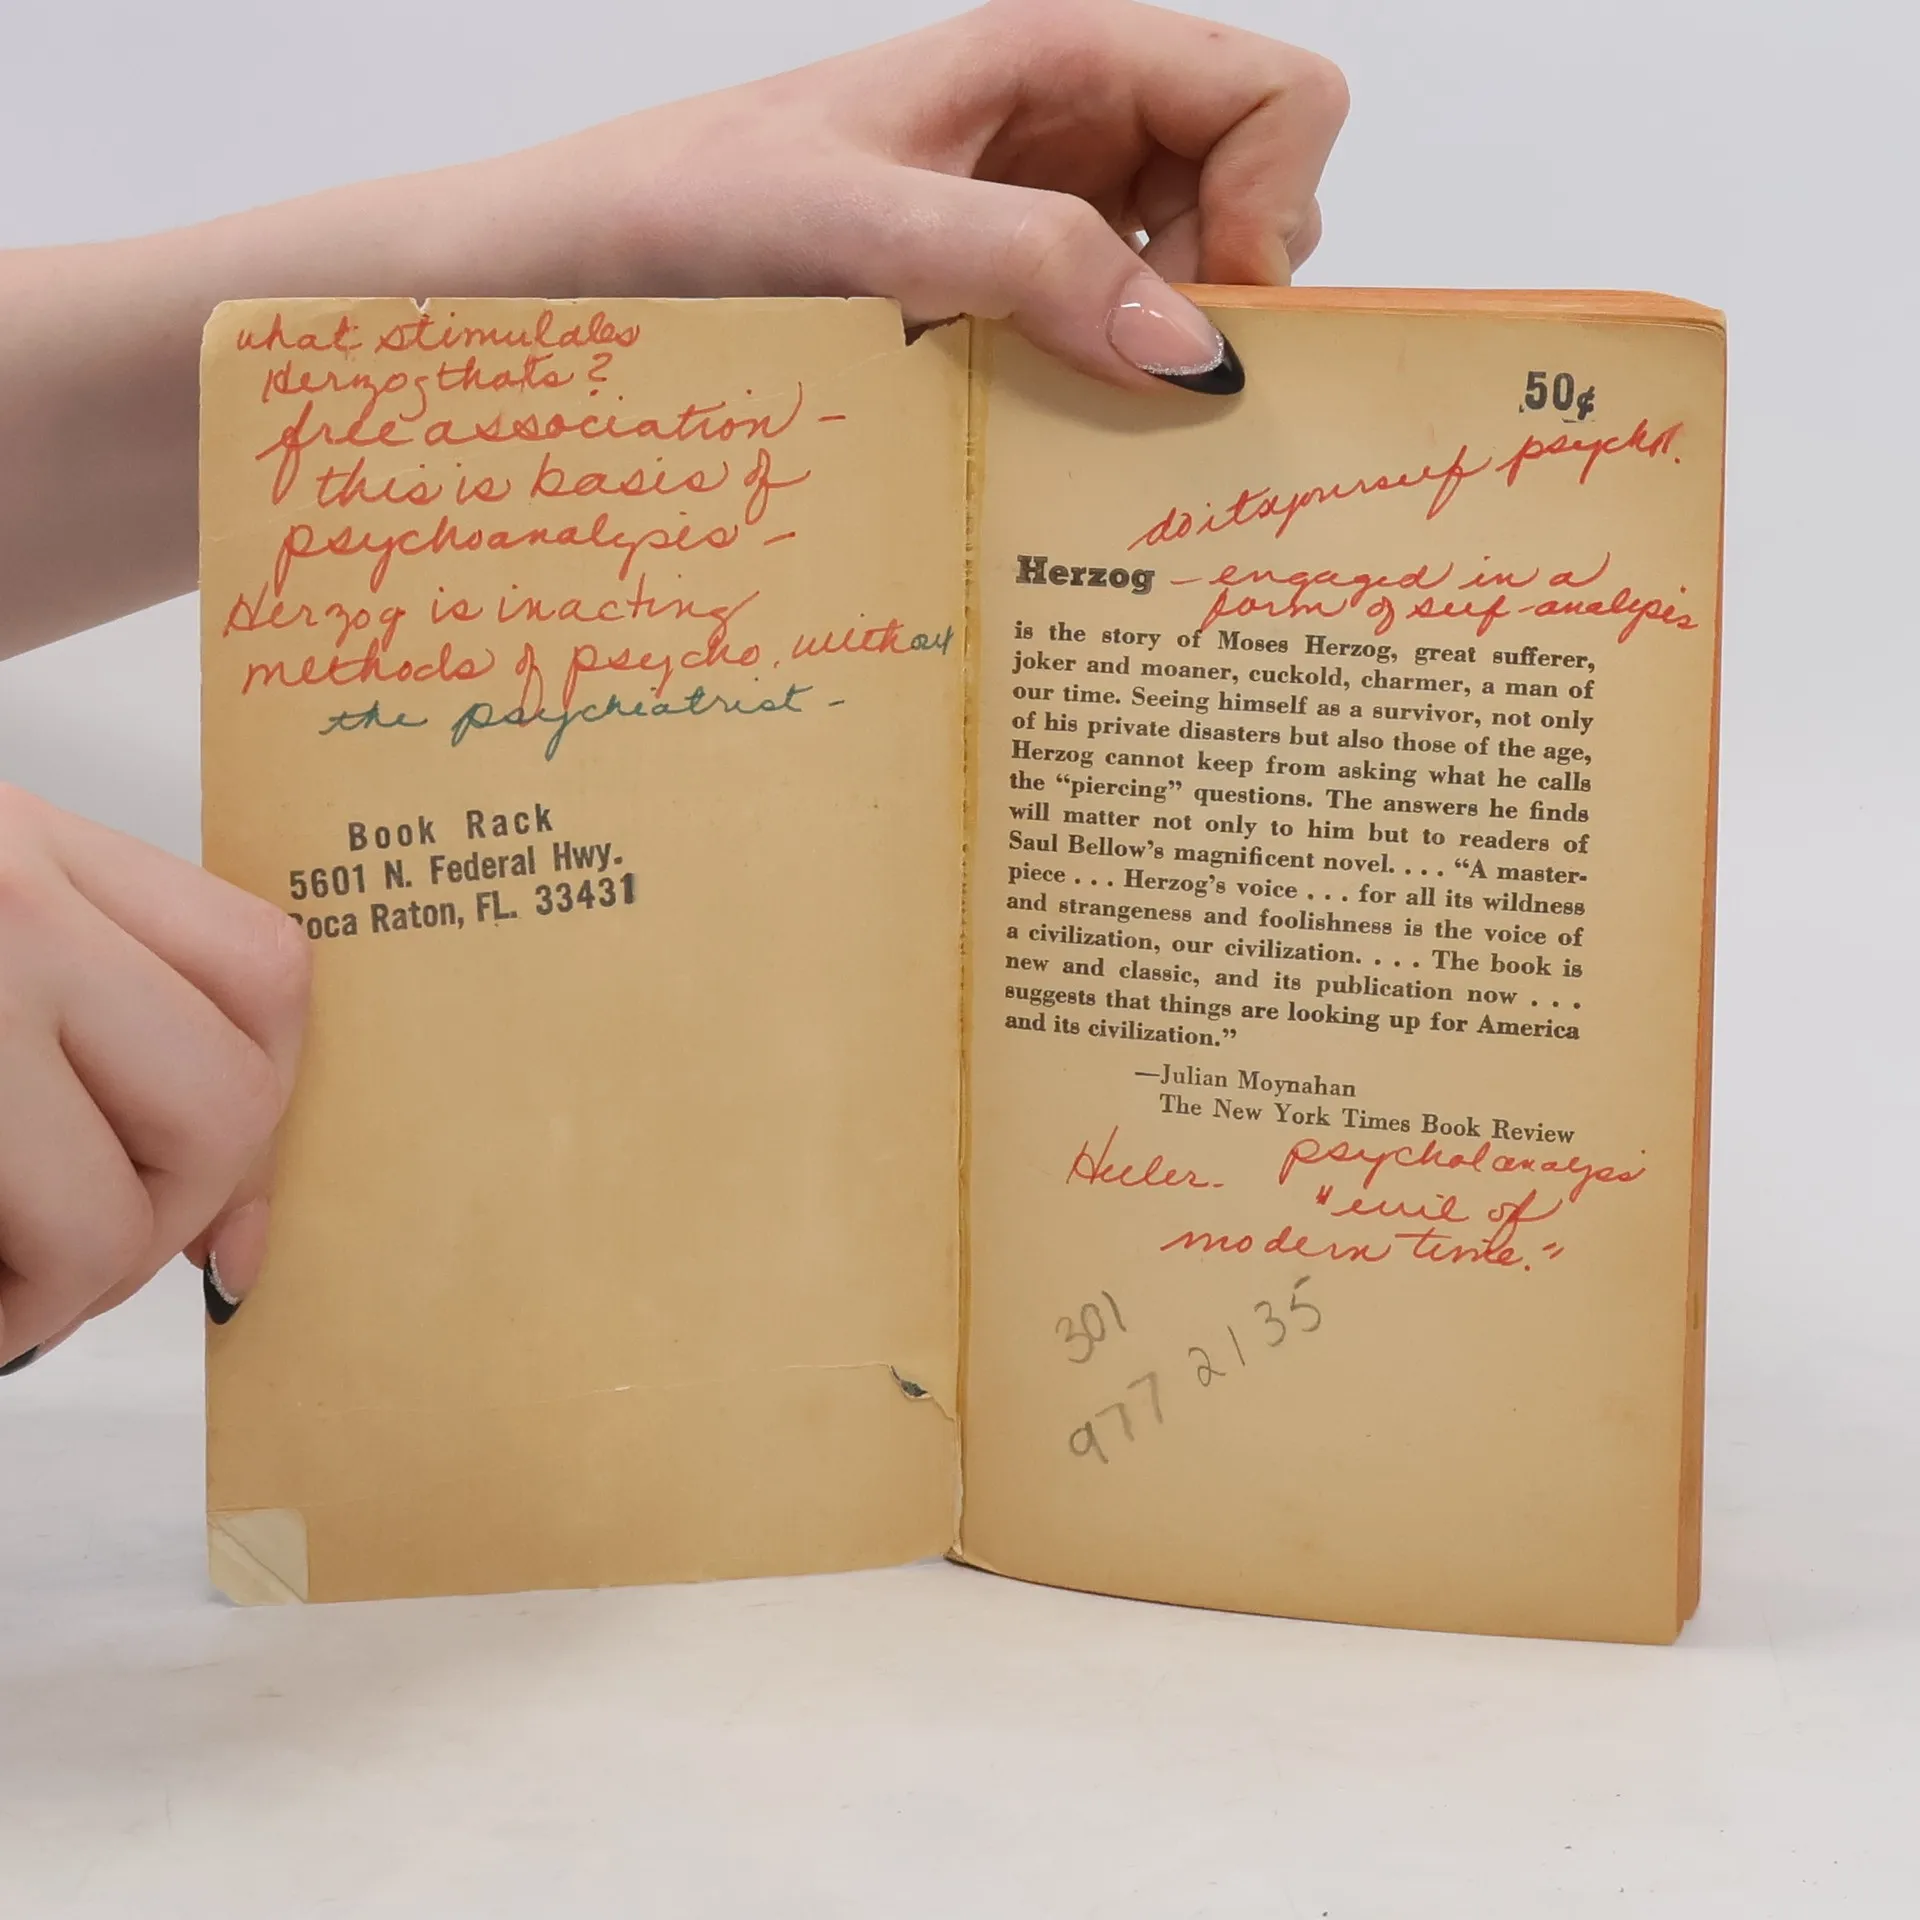 what stimulates
Herzog thats?
free association -
this is basis of
psychoanalysis -
Herzog is inacting
methods of psycho. without
the psychiatrist -
Book Rack
5601 N. Federal Hwy.
Boca Raton, FL. 33431
50¢
do it yourself psychol.
Herzog - engaged in a
form of self-analysis
is the story of Moses Herzog, great sufferer,
joker and moaner, cuckold, charmer, a man of
our time. Seeing himself as a survivor, not only
of his private disasters but also those of the age,
Herzog cannot keep from asking what he calls
the “piercing” questions. The answers he finds
will matter not only to him but to readers of
Saul Bellow’s magnificent novel. . . . “A master-
piece . . . Herzog’s voice . . . for all its wildness
and strangeness and foolishness is the voice of
a civilization, our civilization. . . . The book is
new and classic, and its publication now . . .
suggests that things are looking up for America
and its civilization.”
—Julian Moynahan
The New York Times Book Review
psycholanalysis
"evil of
modern time."
301
977 2135